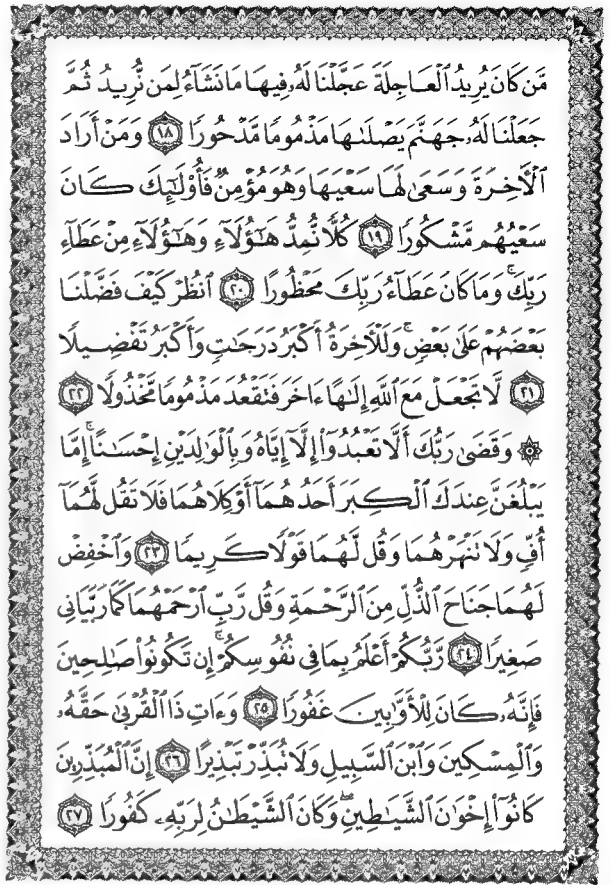 مَّن كَانَ يُرِيدُ ٱلْعَاجِلَةَ عَجَّلْنَا لَهُۥ فِيهَا مَا نَشَآءُ لِمَن نُّرِيدُ ثُمَّ
جَعَلْنَا لَهُۥ جَهَنَّمَ يَصْلَىٰهَا مَذْمُومًا مَّدْحُورًا ١٨ وَمَنْ أَرَادَ
ٱلْءَاخِرَةَ وَسَعَىٰ لَهَا سَعْيَهَا وَهُوَ مُؤْمِنٌ فَأُو۟لَٰٓئِكَ كَانَ
سَعْيُهُم مَّشْكُورًا ١٩ كُلًّا نُّمِدُّ هَٰٓؤُلَآءِ وَهَٰٓؤُلَآءِ مِنْ عَطَآءِ
رَبِّكَ ۚ وَمَا كَانَ عَطَآءُ رَبِّكَ مَحْظُورًا ٢٠ ٱنظُرْ كَيْفَ فَضَّلْنَا
بَعْضَهُمْ عَلَىٰ بَعْضٍ ۚ وَلَلْءَاخِرَةُ أَكْبَرُ دَرَجَٰتٍ وَأَكْبَرُ تَفْضِيلًا
٢١ لَّا تَجْعَلْ مَعَ ٱللَّهِ إِلَٰهًا ءَاخَرَ فَتَقْعُدَ مَذْمُومًا مَّخْذُولًا ٢٢
۞ وَقَضَىٰ رَبُّكَ أَلَّا تَعْبُدُوٓا۟ إِلَّآ إِيَّاهُ وَبِٱلْوَٰلِدَيْنِ إِحْسَٰنًا ۚ إِمَّا
يَبْلُغَنَّ عِندَكَ ٱلْكِبَرَ أَحَدُهُمَآ أَوْ كِلَاهُمَا فَلَا تَقُل لَّهُمَآ
أُفٍّ وَلَا تَنْهَرْهُمَا وَقُل لَّهُمَا قَوْلًا كَرِيمًا ٢٣ وَٱخْفِضْ
لَهُمَا جَنَاحَ ٱلذُّلِّ مِنَ ٱلرَّحْمَةِ وَقُل رَّبِّ ٱرْحَمْهُمَا كَمَا رَبَّيَانِى
صَغِيرًا ٢٤ رَّبُّكُمْ أَعْلَمُ بِمَا فِى نُفُوسِكُمْ ۚ إِن تَكُونُوا۟ صَٰلِحِينَ
فَإِنَّهُۥ كَانَ لِلْأَوَّٰبِينَ غَفُورًا ٢٥ وَءَاتِ ذَا ٱلْقُرْبَىٰ حَقَّهُۥ
وَٱلْمِسْكِينَ وَٱبْنَ ٱلسَّبِيلِ وَلَا تُبَذِّرْ تَبْذِيرًا ٢٦ إِنَّ ٱلْمُبَذِّرِينَ
كَانُوٓا۟ إِخْوَٰنَ ٱلشَّيَٰطِينِ ۖ وَكَانَ ٱلشَّيْطَٰنُ لِرَبِّهِۦ كَفُورًا ٢٧